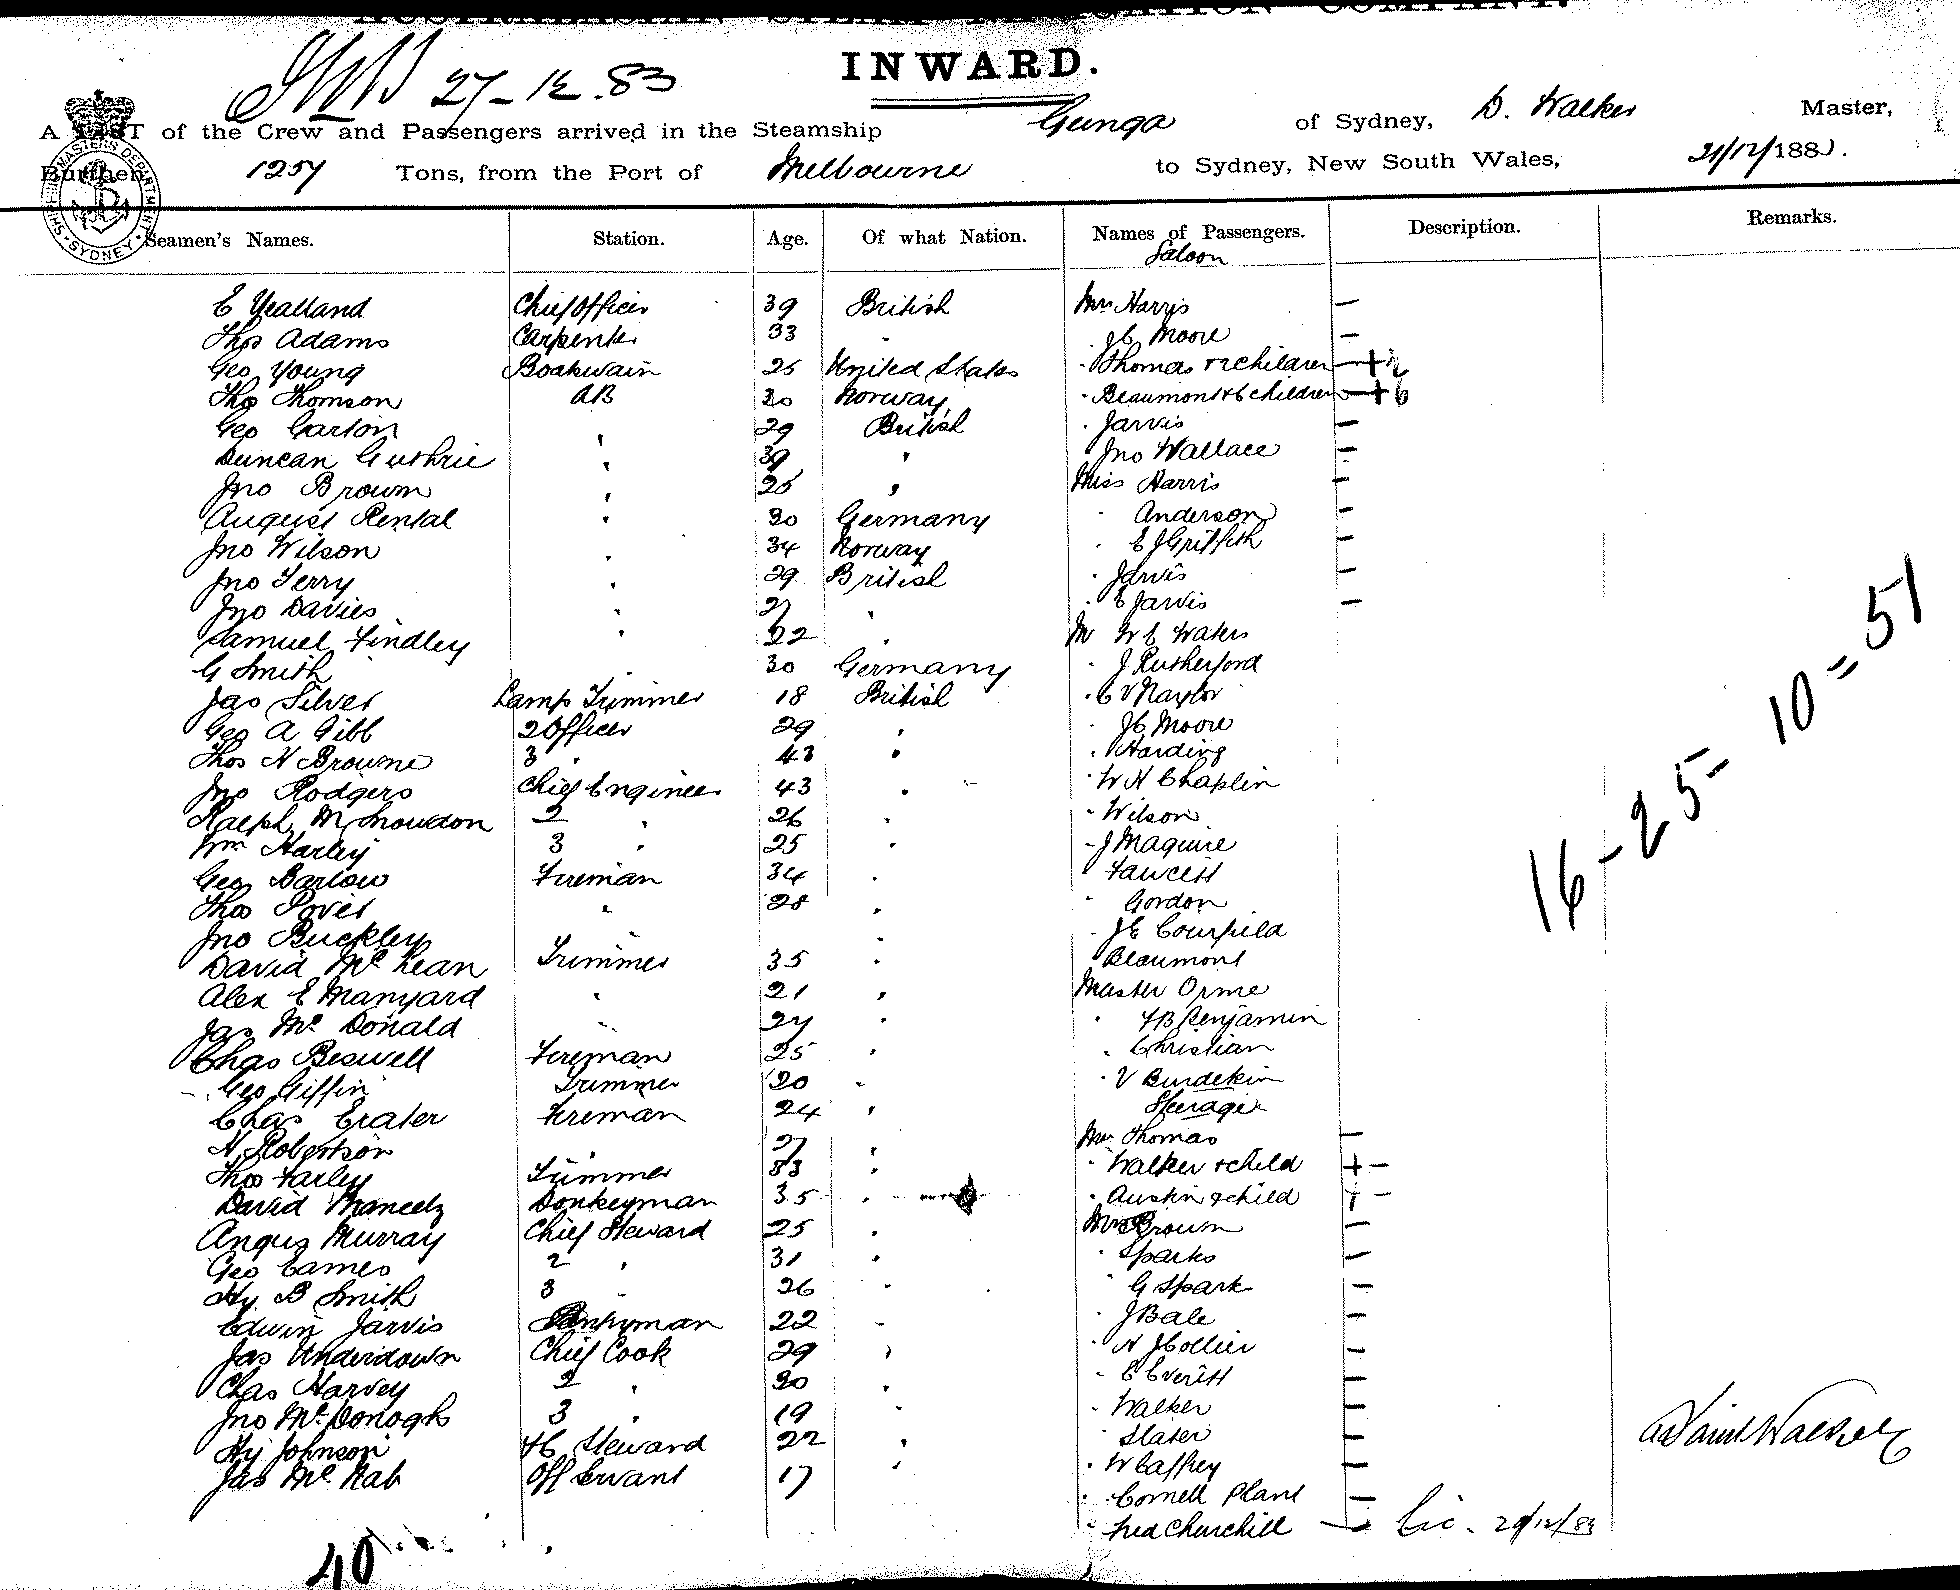 AUSTRALASIAN STEAM NAVIGATION COMPANY.
INWARD.
27-12.83
A LIST of the Crew and Passengers arrived in the Steamship Gunga of Sydney, D. Walker Master,
Burthen 1257 Tons, from the Port of Melbourne to Sydney, New South Wales, 21/12/1883.
SHIPPING MASTERS DEPARTMENT SYDNEY
Seamen's Names. Station. Age. Of what Nation. Names of Passengers. Description. Remarks.
Saloon
E Yealland Chief Officer 39 British Mrs Harris —
Thos Adams Carpenter 33 " " J C Moore —
Geo Young Boatswain 25 United States " Thomas & 2 children — + 2
Thos Thomson AB 30 Norway " Beaumont & 6 children — + 6
Geo Garton " 29 British " Jarvis —
Duncan Guthrie " 39 " " Jno Wallace —
Jno Brown " 25 " Miss Harris —
August Rental " 30 Germany " Anderson —
Jno Wilson " 34 Norway " E J Griffith —
Jno Terry " 29 British " Jarvis —
Jno Davies " 27 " " E Jarvis —
Samuel Findley " 22 " Mr W C Waters
G Smith " 30 Germany " J Rutherford
Jas Silver Lamp Trimmer 18 British " C V Naylor
Geo A Gibb 2 Officer 29 " " J C Moore
Thos H Browne 3 " 43 " " Harding
Jno Rodgers Chief Engineer 43 " " W H Chaplin
Ralph M Snowdon 2 " 26 " " Wilson
Wm Harley 3 " 25 " " J Maguire
Geo Barlow Fireman 34 " " Fawcett
Thos " 28 " " Gordon
Jno Buckley " " " J E
David McLean Trimmer 35 " " Beaumont
Alex E Manyard " 21 " Master Orme
Jas McDonald " 27 " " Benjamin
Chas Beswell Fireman 25 " " Christian
Geo Giffin Trimmer 20 " " V Burdekin
Steerage
Chas Crater Fireman 24 "
H Robertson " 27 " Mrs Thomas —
Thos Farley Trimmer 33 " " Walker & child + —
David Donkeyman 35 " " Austin & child + —
Angus Murray Chief Steward 25 " Brown —
Geo Eames 2 " 31 " " Sparks —
Hy B Smith 3 " 26 " " G Spark —
Edwin Jarvis Pantryman 22 " " J Bale —
Jas Underdown Chief Cook 29 " " H J Collier —
Chas Harvey 2 " 20 " " E Everitt —
Jno McDonogh 3 " 19 " " Walker —
Hy Johnson Steward 22 " " Slater —
Jas McNab Off Servant 17 " " W Caffrey —
" Cornell Plant —
" Fred Churchill —
16-25-10=51
40